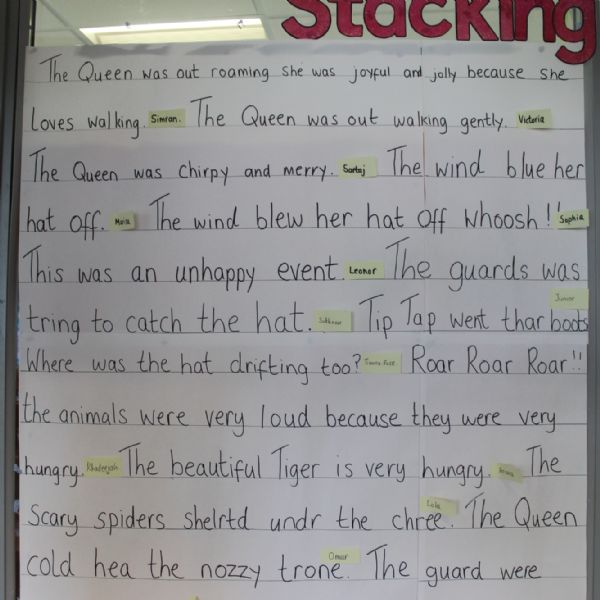 Stacking
The Queen was out roaming she was joyful and jolly because she
loves walking. Simran. The Queen was out walking gently. Victoria
The Queen was chirpy and merry. Sartaj The wind blue her
hat off. Maia The wind blew her hat off whoosh!! Sophia
This was an unhappy event. Leonor The guards was
tring to catch the hat. Tip Tap went thar boots Junior
Where was the hat drifting too? Roar Roar Roar!!
the animals were very loud because they were very
hungry. Khadeejah The beautiful Tiger is very hungry. The
Scary spiders shelrtd undr the chree. Lola The Queen
cold hea the nozzy trone. Omar The guard were